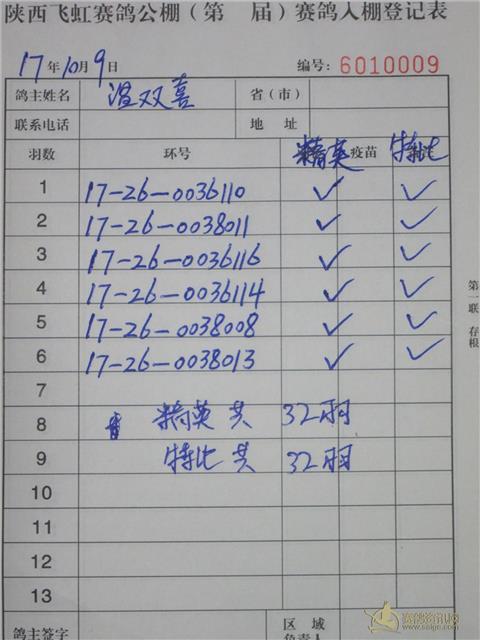 陕西飞虹赛鸽公棚（第 届）赛鸽入棚登记表
17年10月9日 编号: 6010009
鸽主姓名 温双喜 省（市）
联系电话 地 址
羽数 环号 精英 疫苗 特比
1 17-26-0036110 ✓ ✓
2 17-26-0038011 ✓ ✓
3 17-26-0036116 ✓ ✓
4 17-26-0036114 ✓ ✓
5 17-26-0038008 ✓ ✓
6 17-26-0038013 ✓ ✓
7
8 精英 共 32羽
9 特比 共 32羽
10
11
12
13
鸽主签字 区 域
第一联 存根
赛鸽资讯网
www.saige.com